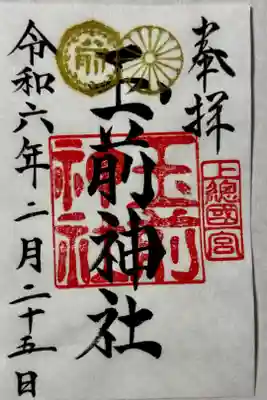 奉拝
上總國一宮
玉前神社
玉前
神社
前
令和六年二月二十五日